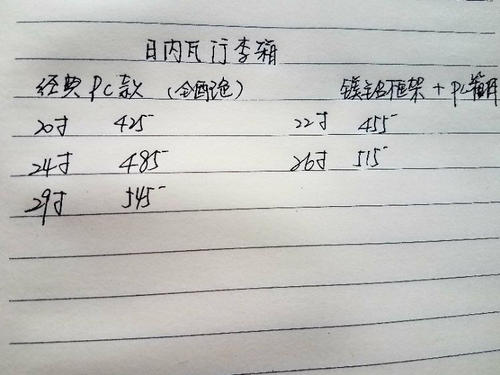 日内瓦行李箱
经典PC款 (全配色) 镁铝框架+PC箱
20寸 425 22寸 455
24寸 485 26寸 515
29寸 545